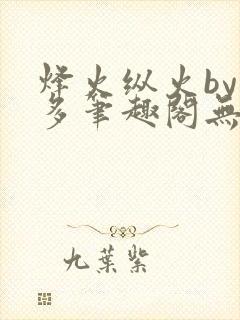 烽火纵火by
多笔趣阁無
九葉紫